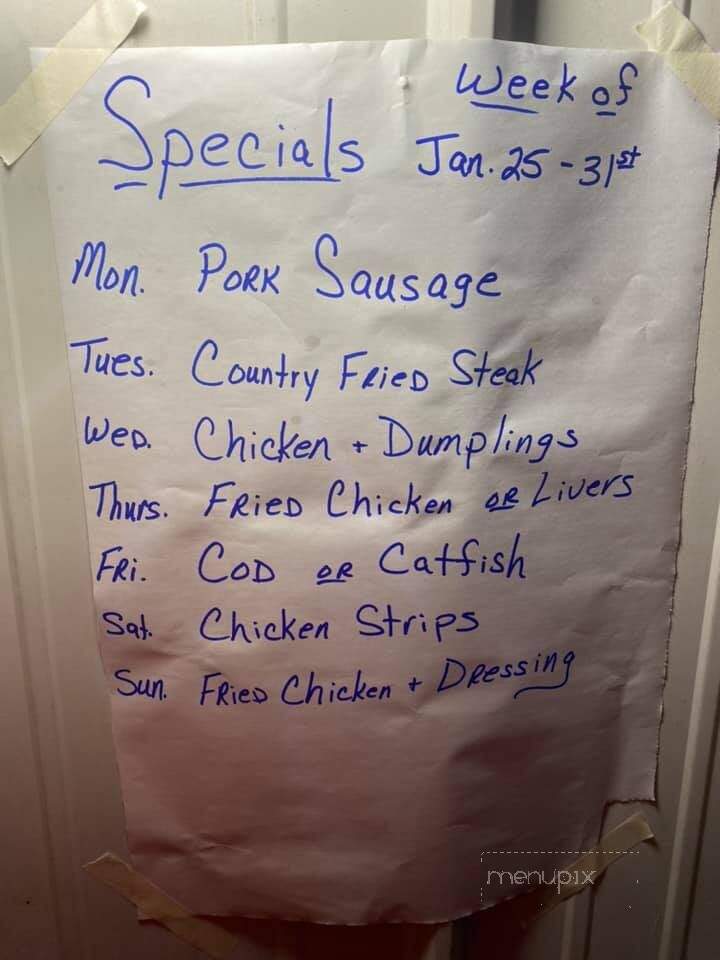 Specials Week of
Jan. 25 - 31st
Mon. Pork Sausage
Tues. Country Fried Steak
Wed. Chicken + Dumplings
Thurs. Fried Chicken or Livers
Fri. Cod or Catfish
Sat. Chicken Strips
Sun. Fried Chicken + Dressing
menupix